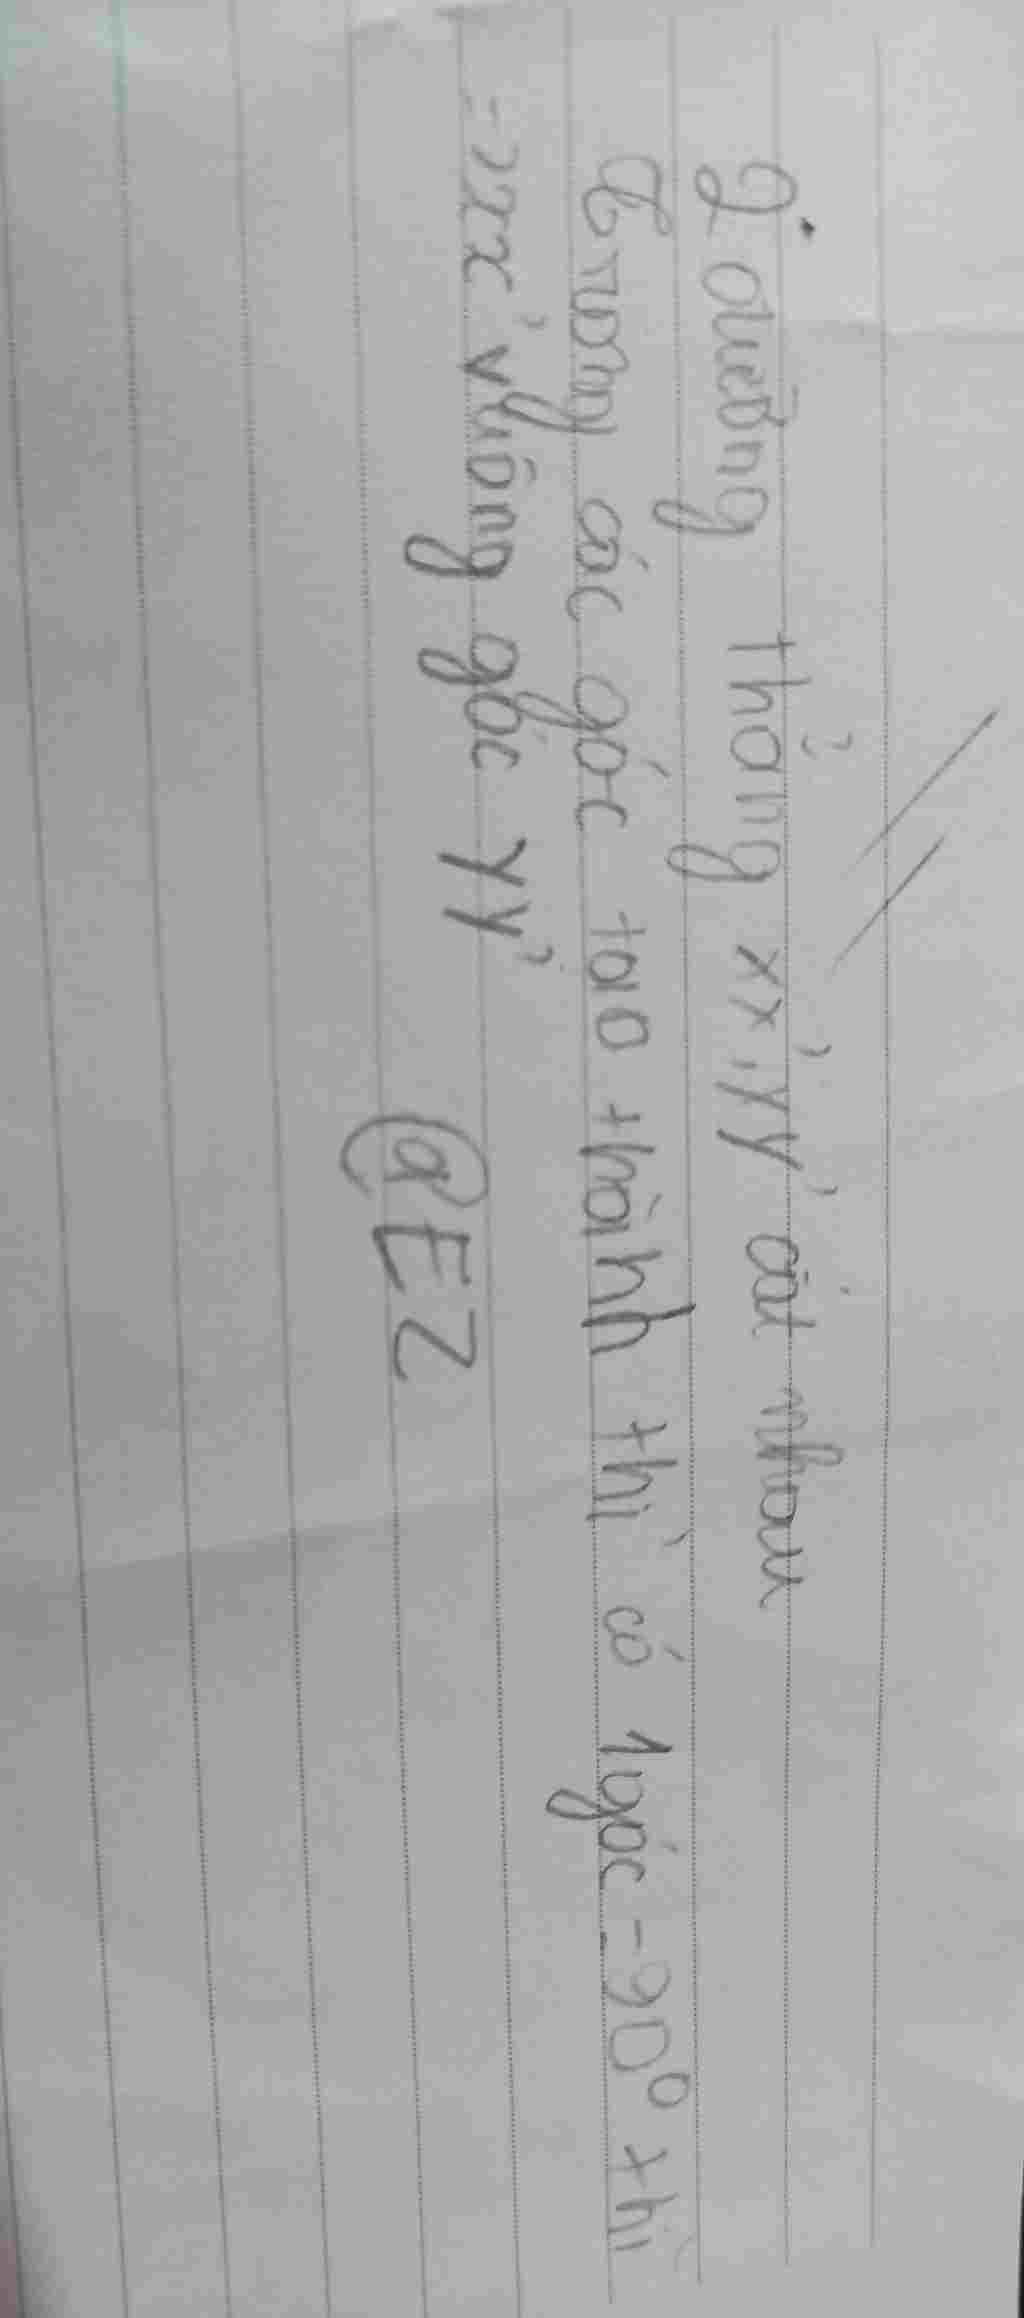 2 đường thẳng xx', yy' cắt nhau
Trong các góc tạo thành thì có 1 góc = 90° thì
=> xx' vuông góc yy'
@EZ